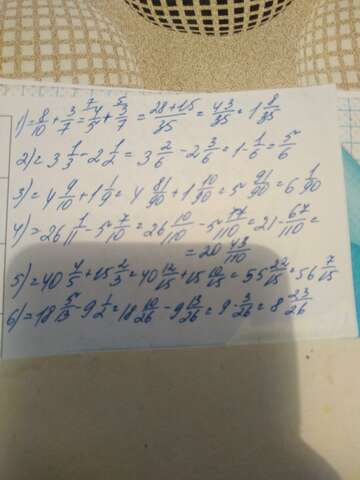 1) = 8/10 + 3/7 = 4/5 + 3/7 = (28+15)/35 = 43/35 = 1 8/35
2) = 3 1/3 - 2 1/2 = 3 2/6 - 2 3/6 = 1 - 1/6 = 5/6
3) = 4 9/10 + 1 1/9 = 4 81/90 + 1 10/90 = 5 91/90 = 6 1/90
4) = 26 1/11 - 5 7/10 = 26 10/110 - 5 77/110 = 21 - 67/110 =
= 20 43/110
5) = 40 4/5 + 15 2/3 = 40 12/15 + 15 10/15 = 55 22/15 = 56 7/15
6) = 18 5/13 - 9 1/2 = 18 10/26 - 9 13/26 = 9 - 3/26 = 8 23/26